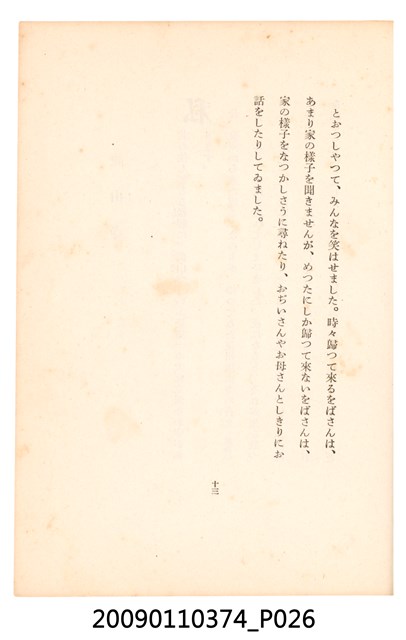 とおつしやつて、みんなを笑はせました。時々歸つて來るをばさんは、
あまり家の樣子を聞きませんが、めつたにしか歸つて來ないをばさんは、
家の樣子をなつかしさうに尋ねたり、おぢいさんやお母さんとしきりにお
話をしたりしてゐました。
十三
20090110374_P026